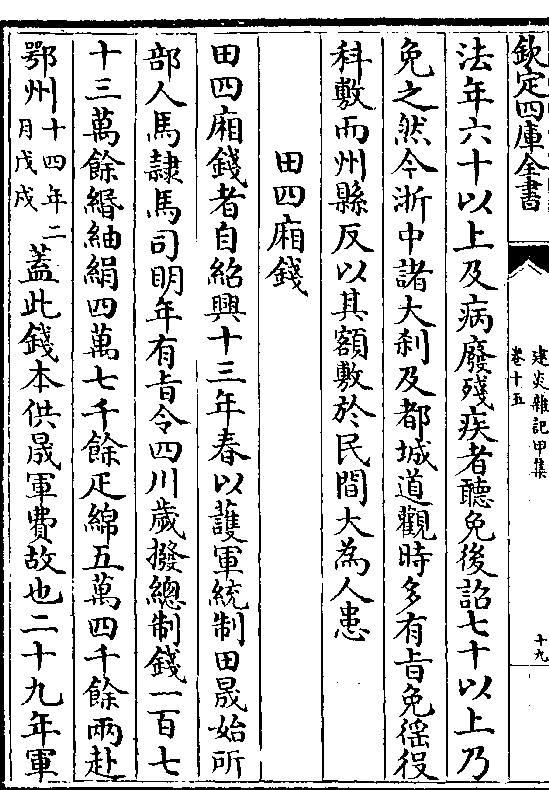 欽定四庫全書
建炎雜記甲集
卷十五
十九
法年六十以上及病廢殘疾者聽免後詔七十以上乃
免之然今浙中諸大刹及都城道觀時多有旨免徭役
科敷而州縣反以其額敷於民間大為人患
田四廂錢
田四廂錢者自紹興十三年春以護軍統制田晟始所
部人馬隸馬司明年有旨令四川歲撥總制錢一百七
十三萬餘緡紬絹四萬七千餘疋綿五萬四千餘兩赴
鄂州十四年二月戊戌蓋此錢本供晟軍費故也二十九年軍